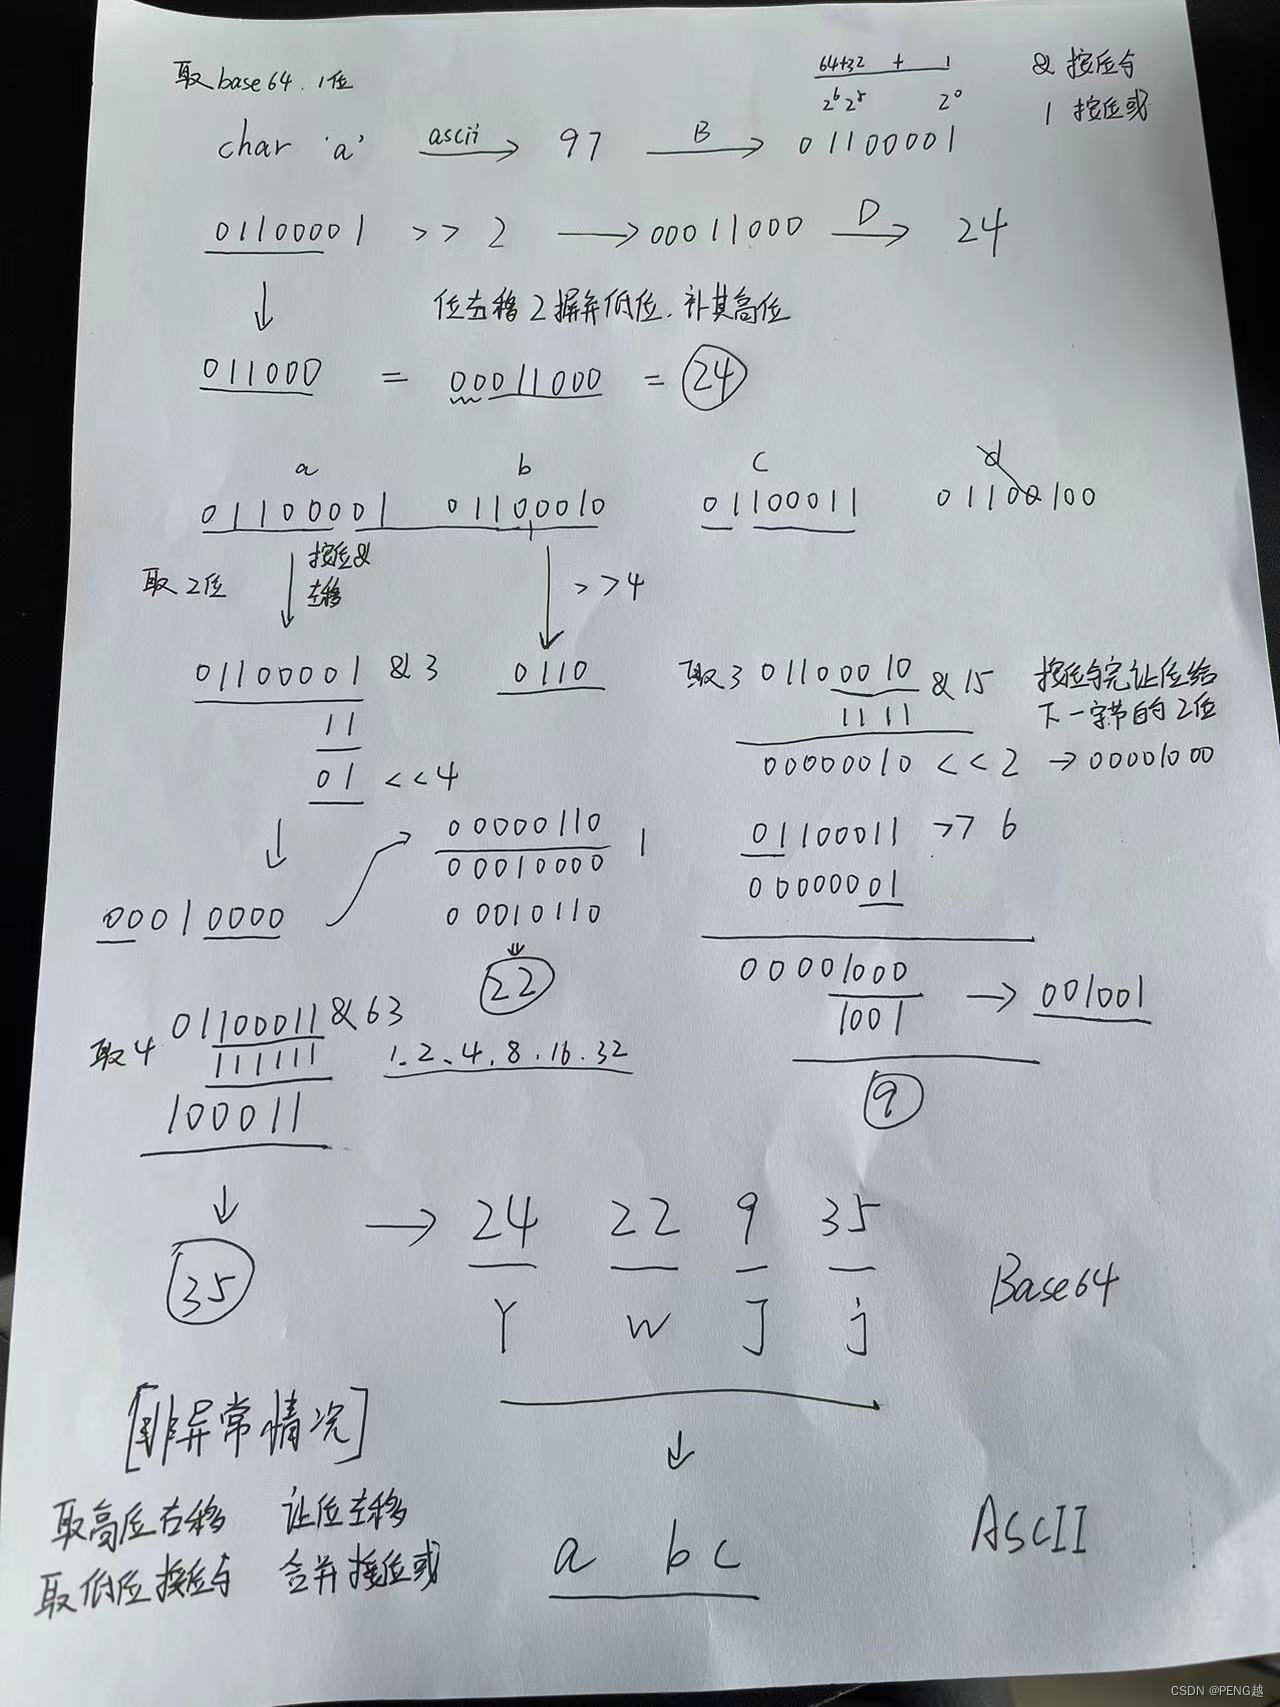 取base64.1位
64+32 + 1
2⁶ 2⁵ 2⁰
& 按位与
| 按位或
char 'a' ascii → 97 B → 01100001
01100001 >> 2 → 00011000 D → 24
↓ 位右移2摒弃低位.补其高位
011000 = 00011000 = 24
a b c d
01100001 01100010 01100011 01100100
取2位 ↓ 按位& 左移 ↓ >>4
01100001 & 3 0110
11
01 <<4
↓
00010000 →
00000110
00010000 |
00010110
↓
22
取3 01100010 & 15
1111
00000010 << 2 → 00001000
按位与完让位给
下一字节的2位
01100011 >> 6
00000001
00001000
1001 → 001001
9
取4 01100011 & 63
111111
100011
1.2.4.8.16.32
↓
35
→ 24 22 9 35
Y W J j
Base64
↓
a b c
ASCII
[非异常情况]
取高位右移 让位左移
取低位按位与 合并按位或
CSDN @PENG越